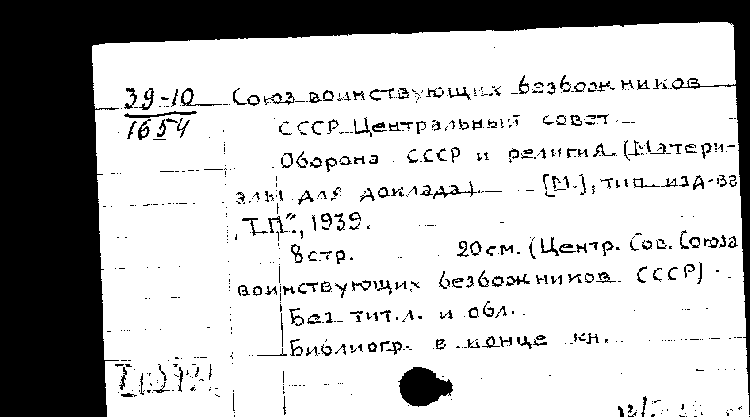 39-10 Союз воинствующих безбожников
1654 СССР Центральный совет
Оборона СССР и религия. (Матери-
алы для доклада) [М.], тип. изд-ва
"Т.П.", 1939.
8 стр. 20 см. (Центр. Сов. Союза
воинствующих безбожников СССР) .
Без тит. л. и обл.
Библиогр. в конце кн.